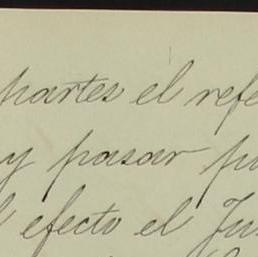 partes el refe
y pasar pu
l efecto el Ju